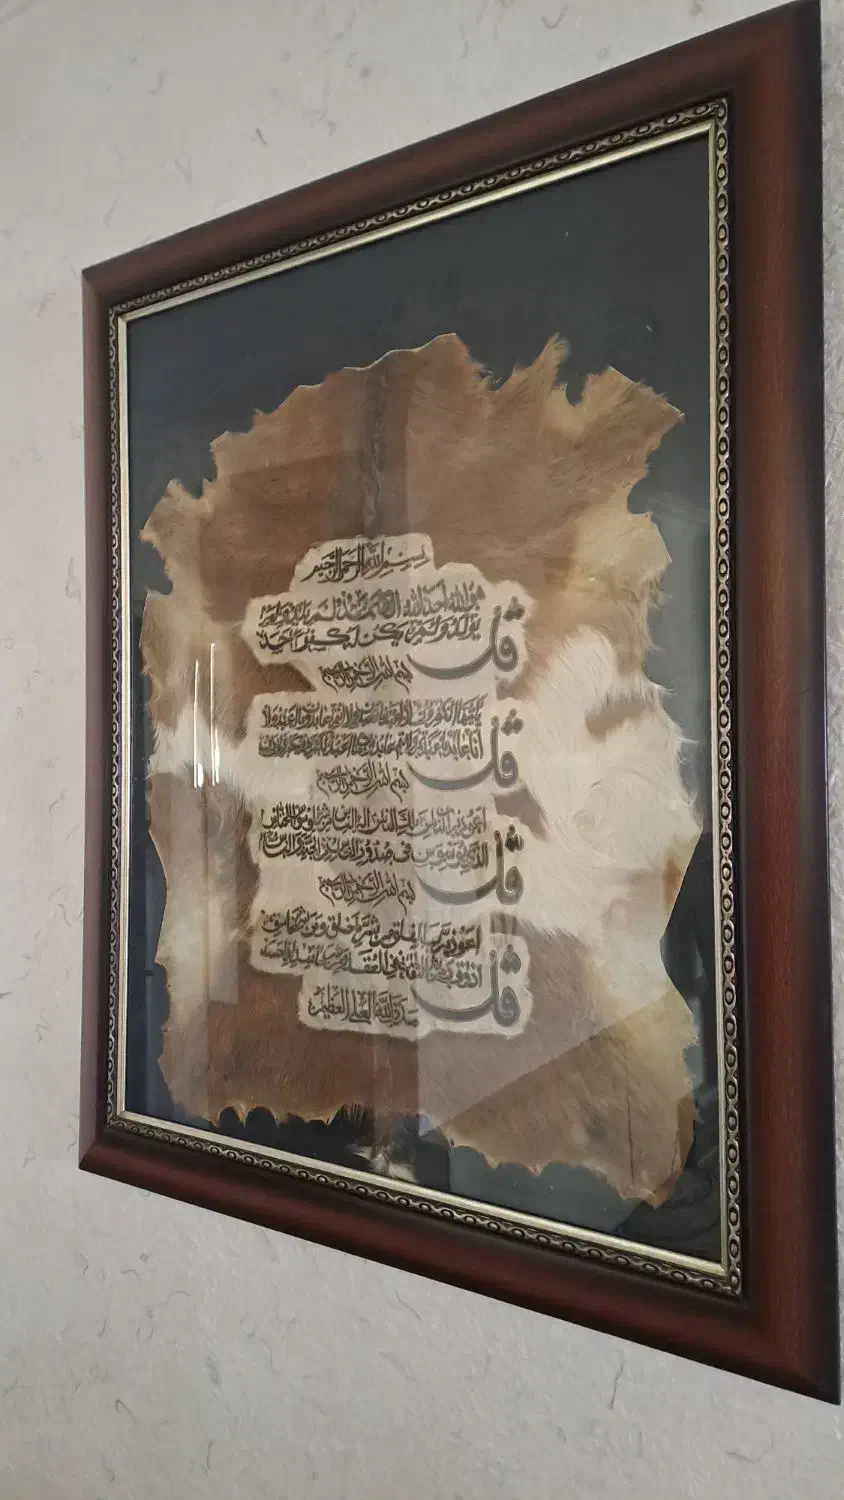 بسم الله الرحمن الرحيم
قل هو الله احد الله الصمد لم يلد ولم
يولد ولم يكن له كفوا احد
بسم الله الرحمن الرحيم
قل يا ايها الكافرون لا اعبد ما تعبدون ولا انتم عابدون ما اعبد ولا
انا عابد ما عبدتم ولا انتم عابدون ما اعبد لكم دينكم ولي دين
بسم الله الرحمن الرحيم
قل اعوذ برب الناس ملك الناس اله الناس من شر الوسواس الخناس
الذي يوسوس في صدور الناس من الجنة والناس
بسم الله الرحمن الرحيم
قل اعوذ برب الفلق من شر ما خلق ومن شر غاسق
اذا وقب ومن شر النفاثات في العقد ومن شر حاسد اذا حسد
صدق الله العلي العظيم